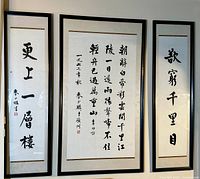 欲窮千里目
朝辭白帝彩雲間千里江
陵一日還兩岸猿聲啼不住
輕舟已過萬重山
一九九七年秋
更上一層樓